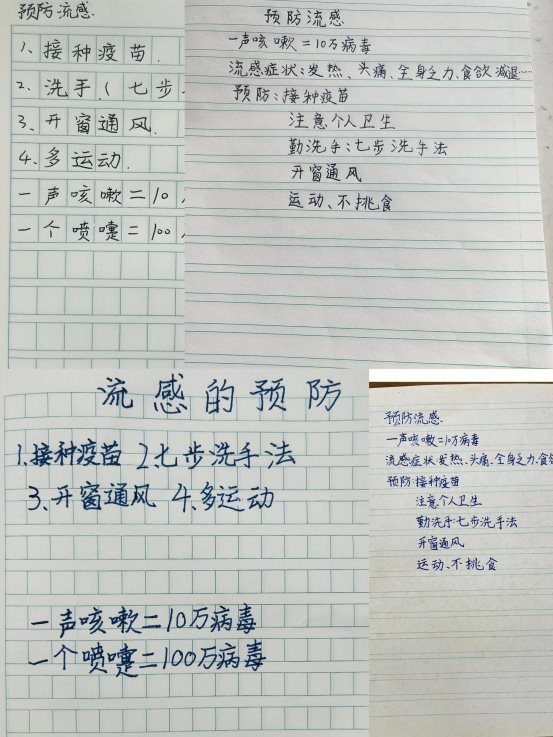 预防流感
1、接种疫苗.
2、洗手(七步
3、开窗通风.
4、多运动.
一声咳嗽=10
一个喷嚏=100
预防流感
一声咳嗽=10万病毒
流感症状:发热、头痛、全身乏力、食欲减退……
预防:接种疫苗
注意个人卫生
勤洗手:七步洗手法
开窗通风
运动、不挑食
流感的预防
1.接种疫苗 2.七步洗手法
3、开窗通风 4.多运动
一声咳嗽=10万病毒
一个喷嚏=100万病毒
预防流感
一声咳嗽=10万病毒
流感症状:发热、头痛、全身乏力、食欲
预防:接种疫苗
注意个人卫生
勤洗手:七步洗手法
开窗通风
运动、不挑食